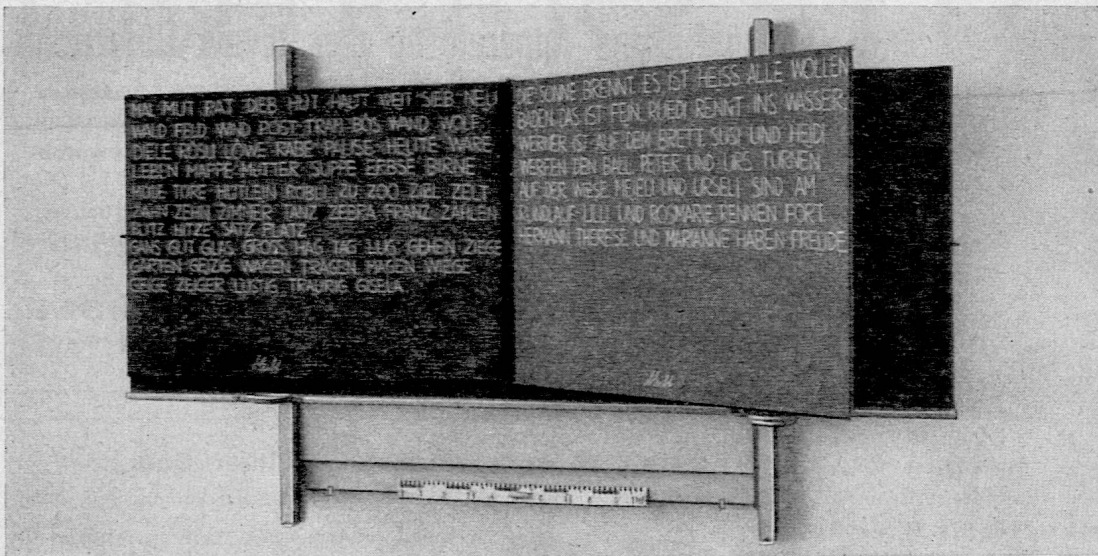 MAL MUT RAT DIEB HUT HAUT WEIT SIEB NEU
WALD FELD WIND POST TRAM BÖS WAND WOLF
DIELE RÖSLI LÖWE RABE PAUSE HEUTE WARE
LEBEN MAPPE MUTTER SUPPE ERBSE BIRNE
TORE HÜTLEIN RÖBLI ZU ZOO ZIEL ZELT
ZAHN ZEHN ZIMMER TANZ ZEBRA FRANZ ZAHLEN
BLITZ HITZE SATZ PLATZ
GANS GUT GLAS GROSS HAG TAG LUG GEHEN ZIEGE
GARTEN GEIZIG WAGEN TRAGEN MAGEN WIEGE
GEIGE ZEIGER LUSTIG TRAURIG GISELA
DIE SONNE BRENNT ES IST HEISS ALLE WOLLEN
BADEN DAS IST FEIN RUEDI RENNT INS WASSER
WERNER IST AUF DEM BRETT SUSI UND HEIDI
WERFEN DEN BALL PETER UND URS TURNEN
AUF DER WIESE MEIELI UND URSELI SIND AM
RUNDLAUF LILLI UND ROSMARIE RENNEN FORT
HERMANN THERESE UND MARIANNE HABEN FREUDE